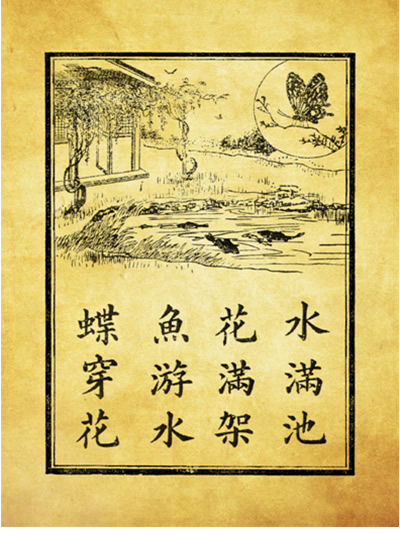 水滿池
花滿架
魚游水
蝶穿花